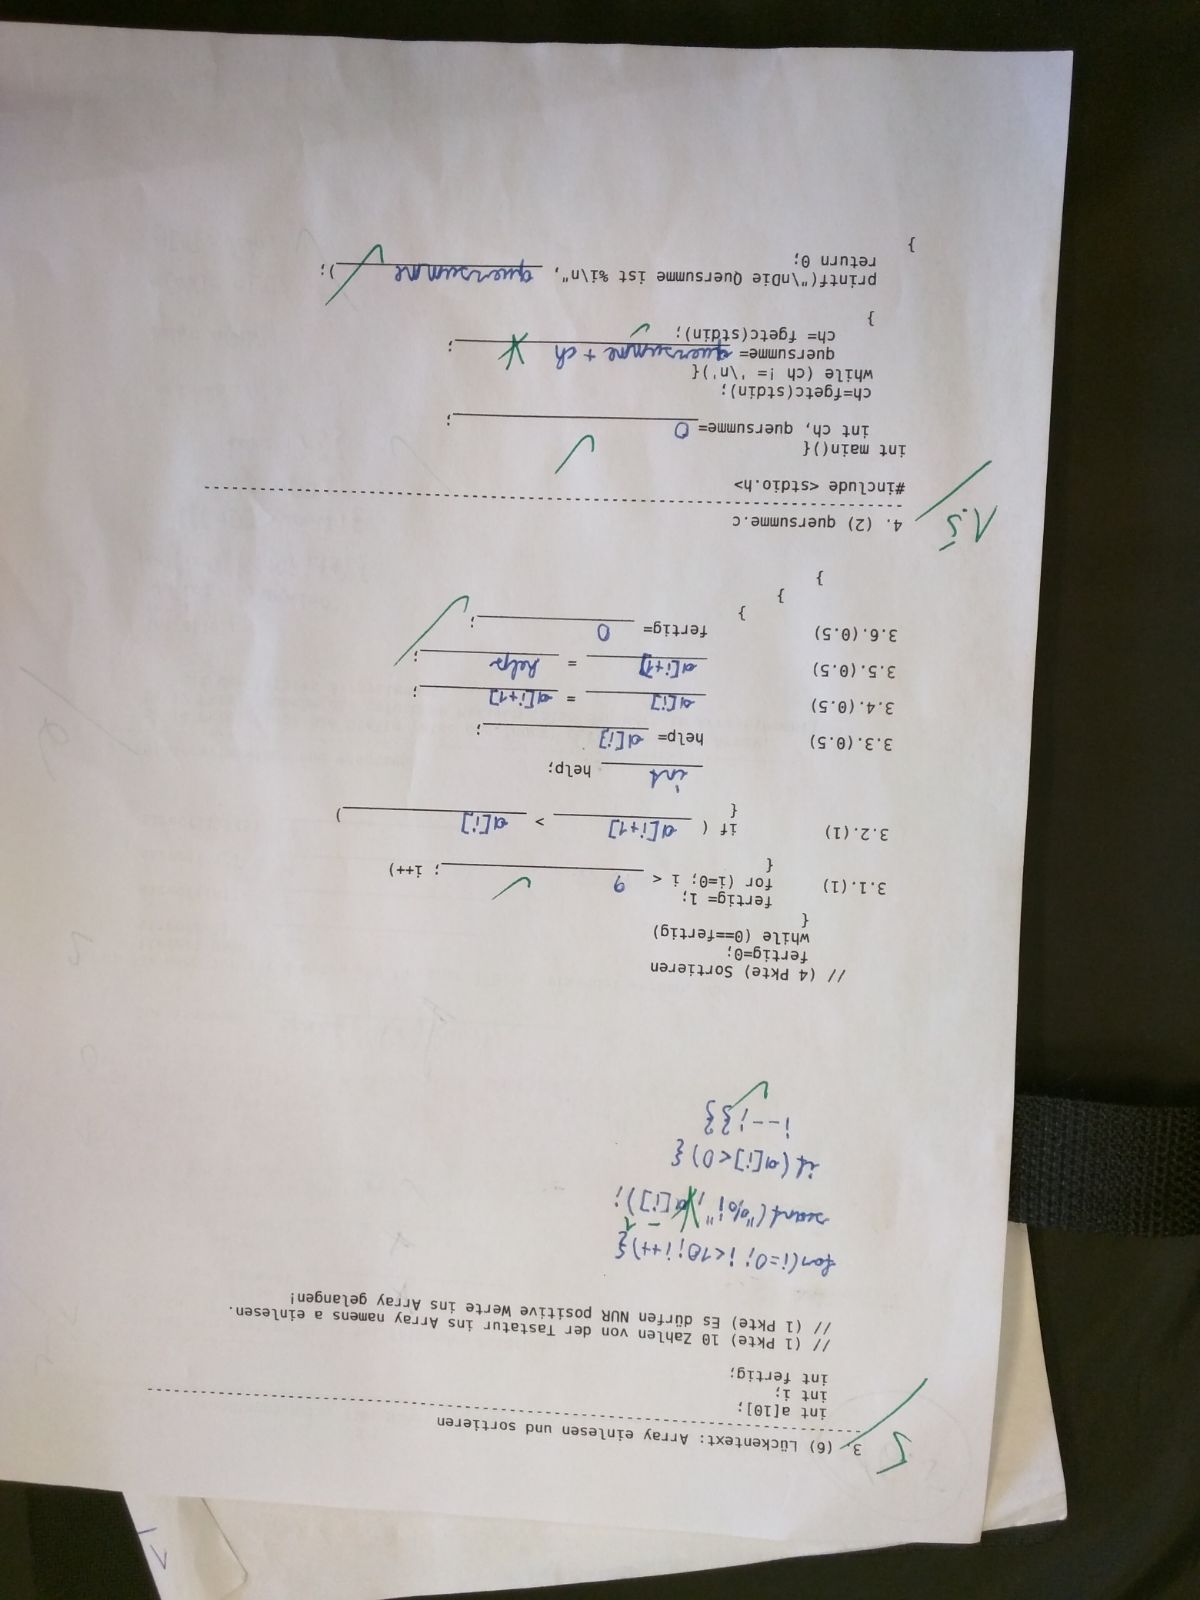 5
3. (6) Lückentext: Array einlesen und sortieren
int a[10];
int i;
int fertig;
// (1 Pkte) 10 Zahlen von der Tastatur ins Array namens a einlesen.
// (1 Pkte) Es dürfen NUR positive Werte ins Array gelangen!
for(i=0; i<10; i++){
-1
scanf("%i", a[i]);
if(a[i]<0){
i--;}}
// (4 Pkte) Sortieren
fertig=0;
while (0==fertig)
{
fertig= 1;
3.1.(1) for (i=0; i < 9 ; i++)
{
3.2.(1) if ( a[i+1] > a[i] )
{
int help;
3.3.(0.5) help= a[i] ;
3.4.(0.5) a[i] = a[i+1] ;
3.5.(0.5) a[i+1] = help ;
3.6.(0.5) fertig= 0 ;
}
}
}
1.5
4. (2) quersumme.c
#include <stdio.h>
int main(){
int ch, quersumme= 0 ;
ch=fgetc(stdin);
while (ch != '\n'){
quersumme= quersumme + ch ;
ch= fgetc(stdin);
}
printf("\nDie Quersumme ist %i\n", quersumme );
return 0;
}